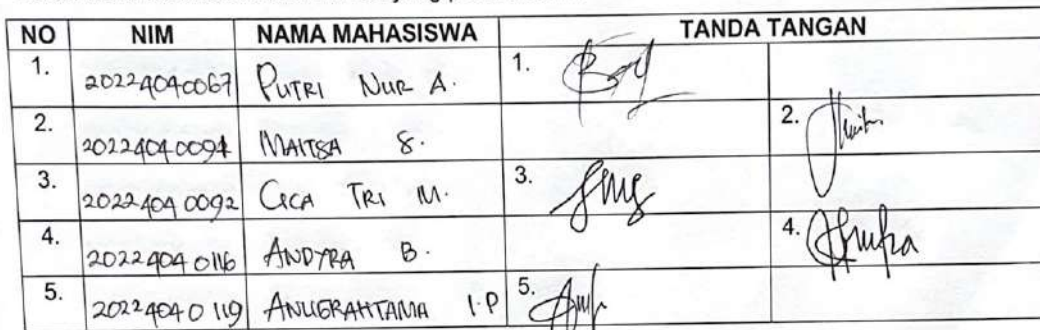 NO NIM NAMA MAHASISWA TANDA TANGAN
1. 20224040067 PUTRI NUR A. 1.
2. 20224040094 MAITSA S. 2.
3. 20224040092 CICA TRI M. 3.
4. 20224040116 ANDYRA B. 4.
5. 20224040119 ANUGRAHTAMA I.P 5.